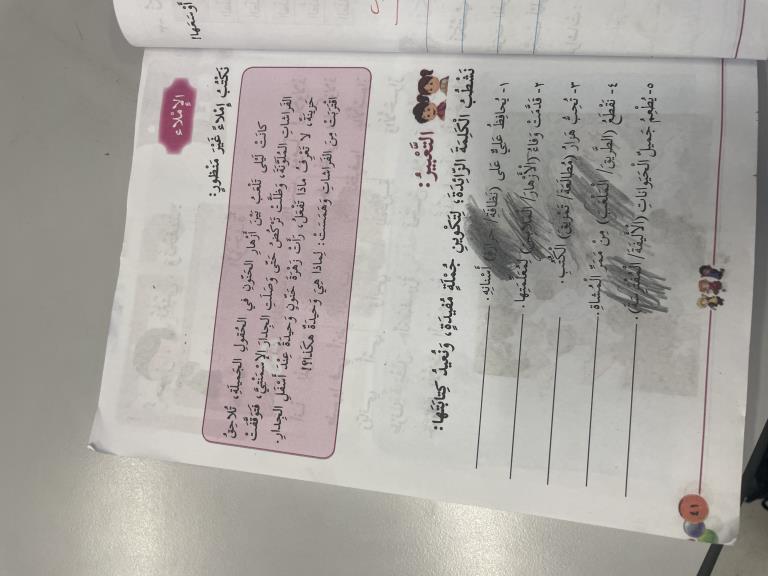 أَوْسَمَهَا!
الإِمْلاء
نَكْتُبُ إِمْلاءً غَيْرَ مَنْظورٍ:
كانَتْ لَيْلى تَلْعَبُ بَيْنَ أَزْهارِ الحَنّونِ في الحُقولِ الجَميلَةِ، تُلاحِقُ
الفَراشاتِ المُلَوَّنَةَ، وَظَلَّتْ تَرْكُضُ حَتّى وَصَلَتِ الجِدارَ الإِسْمَنْتِيَّ، فَتَوَقَّفَتْ
حَزينَةً، لا تَعْرِفُ ماذا تَفْعَلُ، رَأَتْ زَهْرَةَ حَنّونٍ وَحيدَةً عِنْدَ أَسْفَلِ الجِدارِ.
اقْتَرَبَتْ مِنَ الفَراشاتِ وَهَمَسَتْ: لِماذا هِيَ وَحيدَةٌ هكَذا؟!
التَّعْبيرُ:
نَشْطُبُ الْكَلِمَةَ الزّائِدَةَ؛ لِتَكْوينِ جُمْلَةٍ مُفيدَةٍ، وَنُعيدُ كِتابَتَها:
١- يُحافِظُ عَلِيٌّ عَلى (نَظافَةِ/ ) أَسْنانِهِ.
٢- قَدَّمَتْ وَفاءُ (الْأَزْهارَ/ ) لِمُعَلِّمَتِها.
٣- نُحِبُّ هَزارُ (مُطالَعَةَ/ تَمْزيقَ) الْكُتُبِ.
٤- نَقْطَعُ (الطَّريقَ/ الْمَلْعَبَ) مِنْ مَمَرِّ الْمُشاةِ.
٥- يُطْعِمُ جَميلٌ الْحَيَواناتِ (الْأَليفَةَ/ الْمُفْتَرِسَةَ).
٤١